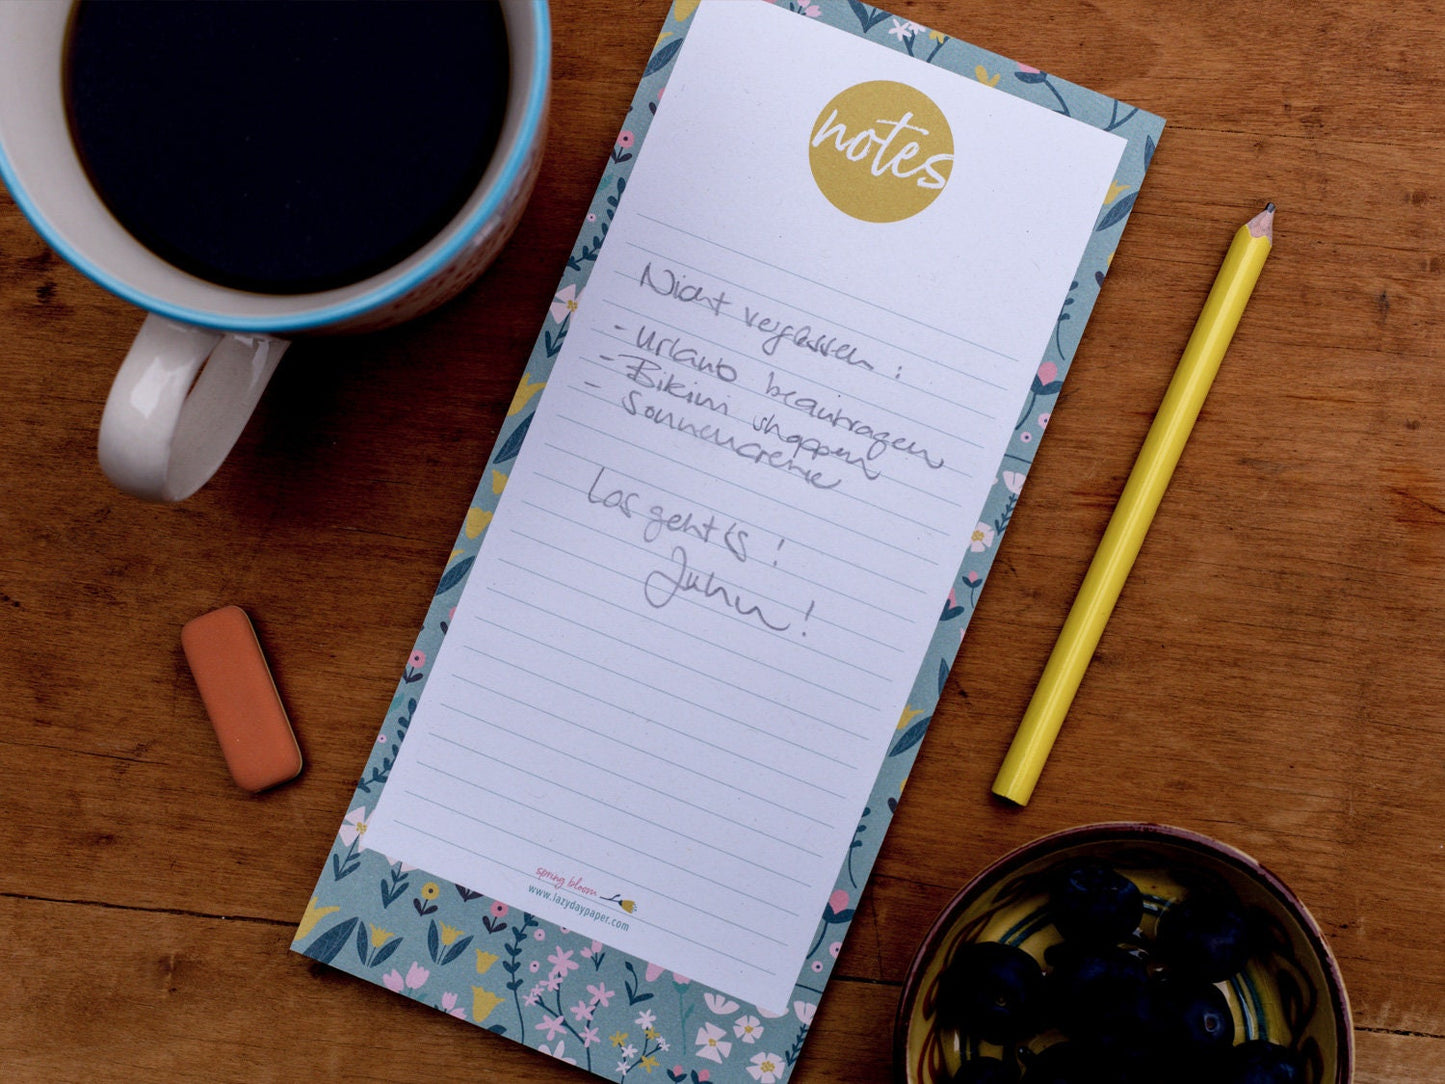 notes
Nicht vergessen:
- Urlaub beantragen
- Bikini shoppen
- Sonnencreme
Los geht's!
Juhu!
spring bloom
www.lazydaypaper.com